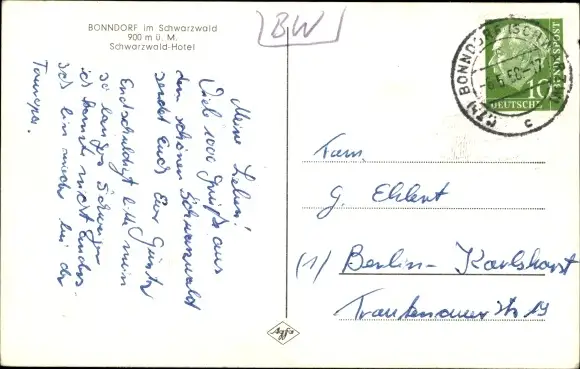 BONNDORF im Schwarzwald
900 m ü. M.
Schwarzwald-Hotel
BW
Meine Lieben!
Viele 1000 Grüße aus
dem schönen Schwarzwald
sendet Euch Euer Günter
Entschuldigt bitte mein
so langes Schweigen
ich konnte nicht anders
ich bin noch bei der
Truppe.
BONNDORF (SCHWARZW)
-8.5.58-17
c
DEUTSCHE BUNDESPOST
10
Fam.
G. Ehlert
(1) Berlin-Karlshorst
Trautenauer Str 19
Agfa